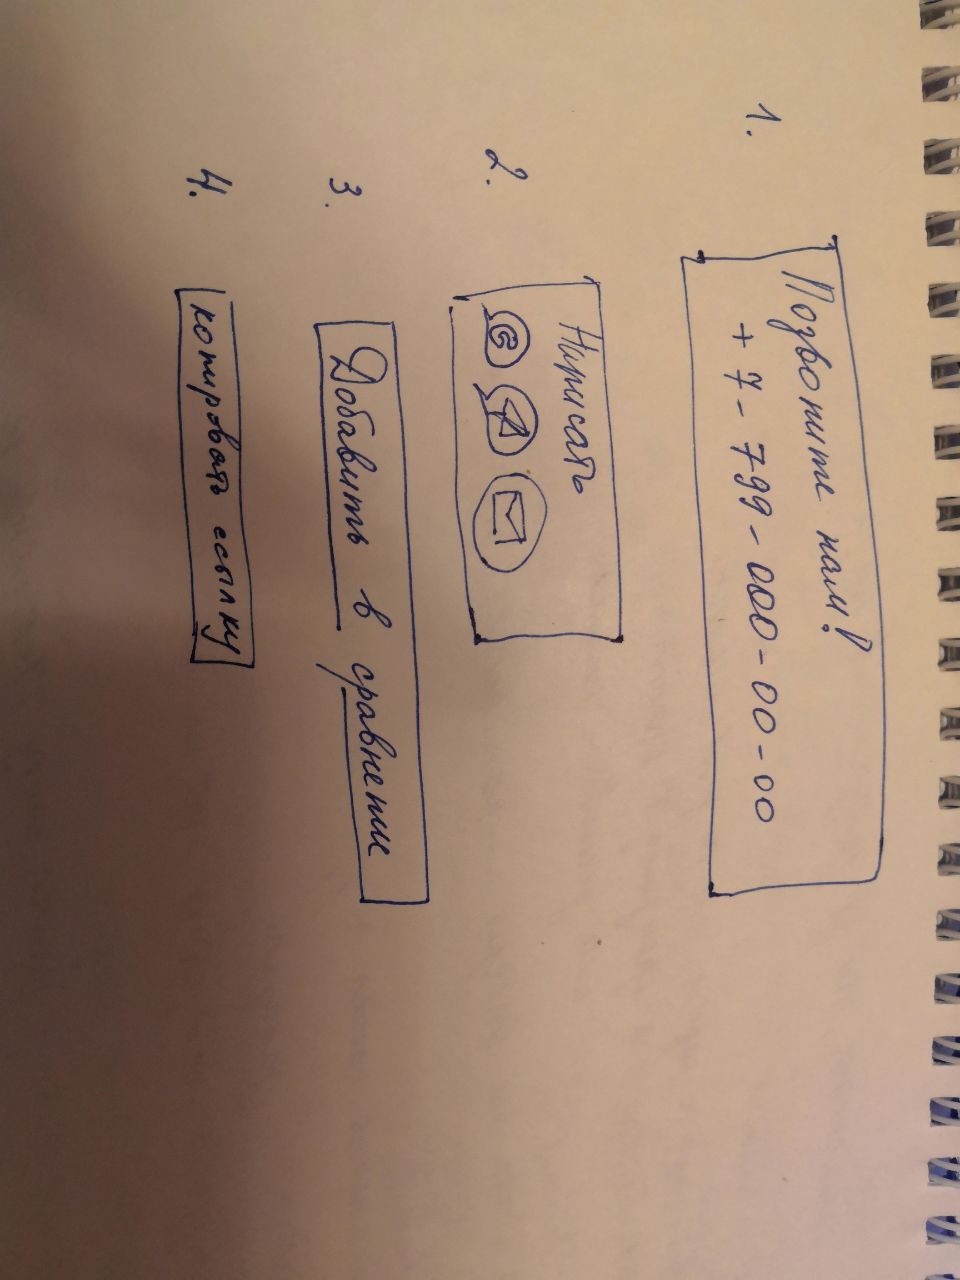 1.
Позвоните нам!
+7-799-000-00-00
2.
Написать
3.
Добавить в сравнение
4.
копировать ссылку